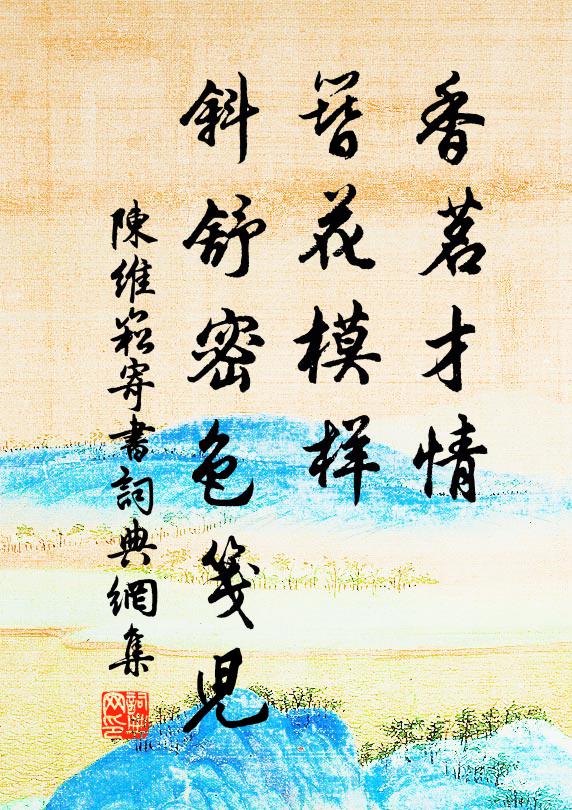 香茗才情
簪花模样
斜舒密色笺兒
陳維崧寄書詞典網集